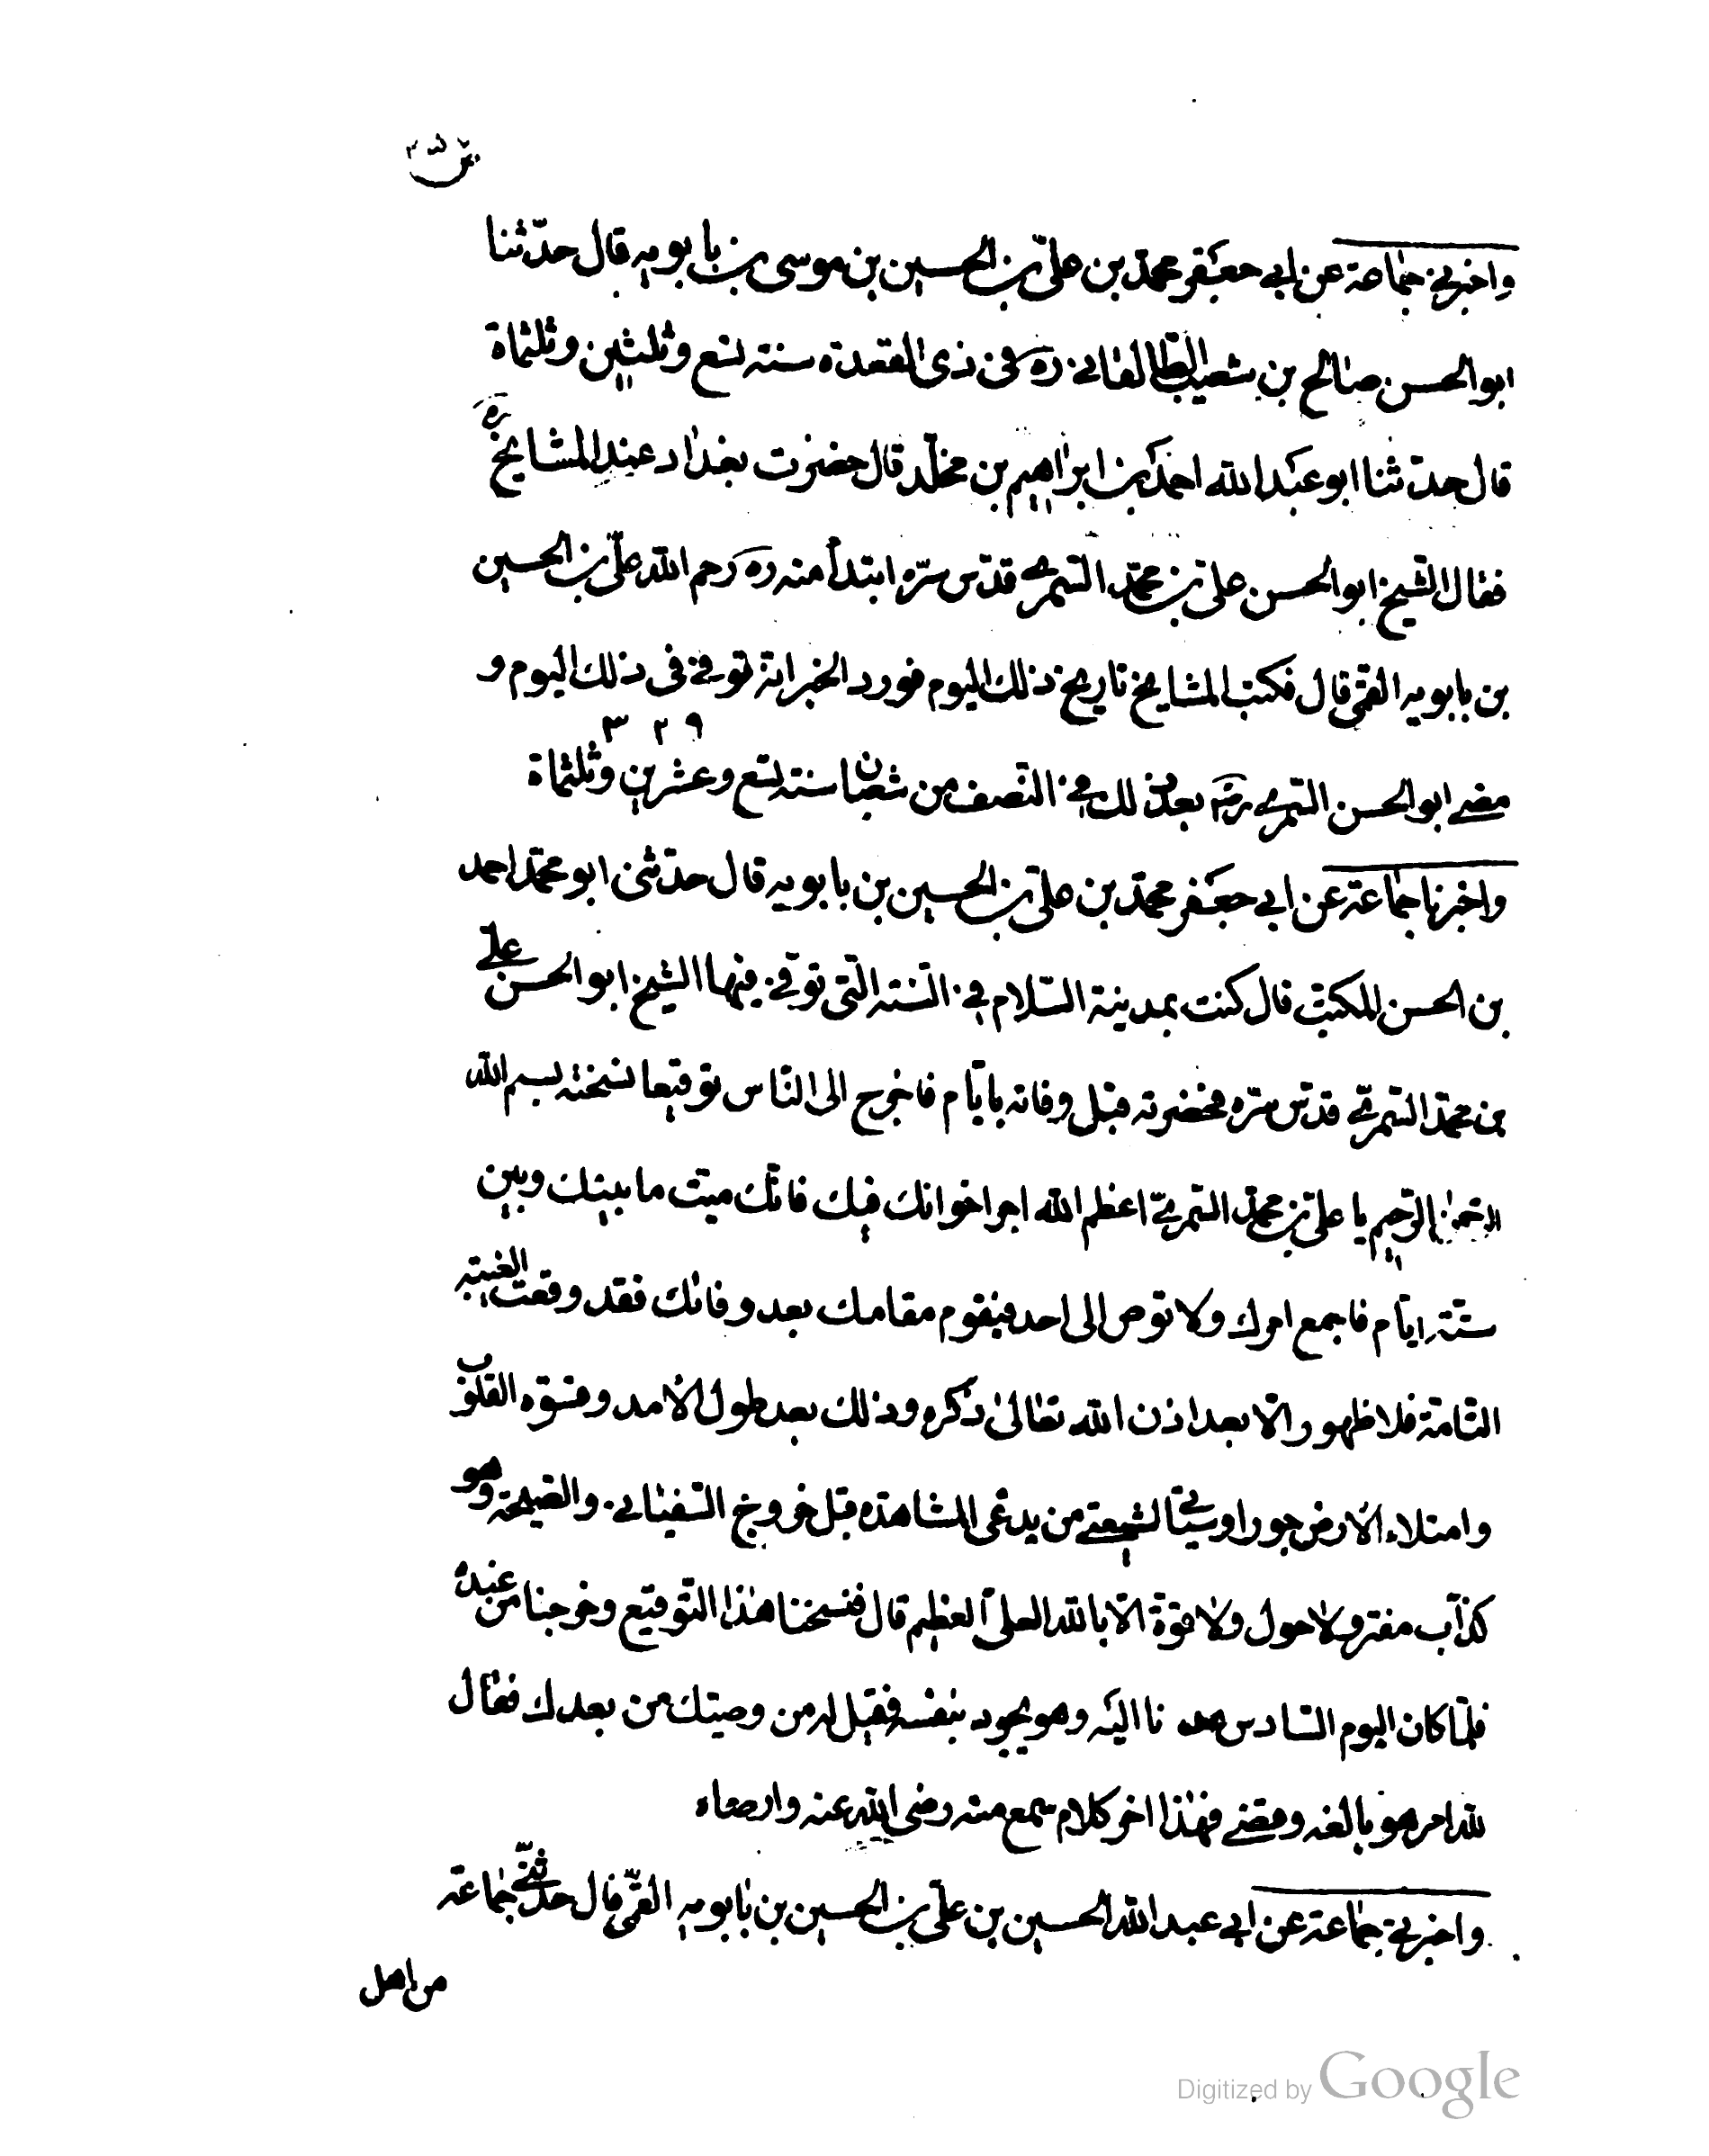 واخبرني جماعة عن ابي جعفر محمد بن علي بن الحسين بن موسى بن بابويه قال حدّثنا
ابو الحسن صالح بن شعيب الطالقاني ره في ذى القعدة سنة تسع وثلثين وثلثماة
قال حدثنا ابو عبد الله احمد بن ابراهيم بن مخلد قال حضرت بغداد عند المشايخ ره
فقال الشيخ ابو الحسن علي بن محمد السمري قدّس سرّه ابتدأ منه ره رحم الله علي بن الحسين
بن بابويه القمي قال فكتب المشايخ تاريخ ذلك اليوم فورد الخبر انه توفي في ذلك اليوم و
٣٢٩
مضى ابو الحسن السمري بعد ذلك في النصف من شعبان سنة تسع وعشرين وثلثماة
واخبرنا جماعة عن ابي جعفر محمد بن علي بن الحسين بن بابويه قال حدثنى ابو محمد احمد
بن الحسن المكتب قال كنت بمدينة السلام في السنة التى توفي فيها الشيخ ابو الحسن علي
بن محمد السمري قدس سرّه فحضرته قبل وفاته بايّام فاخرج الى الناس توقيعا نسخته بسم الله
الرحمن الرحيم يا علي بن محمد السمري اعظم الله اجر اخوانك فيك فانك ميت ما بينك وبين
ستة ايّام فاجمع امرك ولا توص الى احد فيقوم مقامك بعد وفاتك فقد وقعت الغيبة
التامة فلا ظهور الا بعد اذن الله تعالى ذكره وذلك بعد طول الامد وقسوة القلوب
وامتلاء الارض جورا وسيأتي لشيعتي من يدعى المشاهدة قبل خروج السفياني والصيحة وهو
كذّاب مفتر ولا حول ولا قوة الا بالله العلي العظيم قال فنسخنا هذا التوقيع وخرجنا من عنده
فلمّا كان اليوم السادس عدنا اليه وهو يجود بنفسه فقيل له من وصيّك من بعدك فقال
لله امر هو بالغه وقضى فهذا اخر كلام سمع منه رضى الله عنه وارضاه
واخبرني جماعة عن ابي عبد الله الحسين بن علي بن الحسين بن بابويه القمّي قال حدثني جماعة
من اهل
Digitized by Google